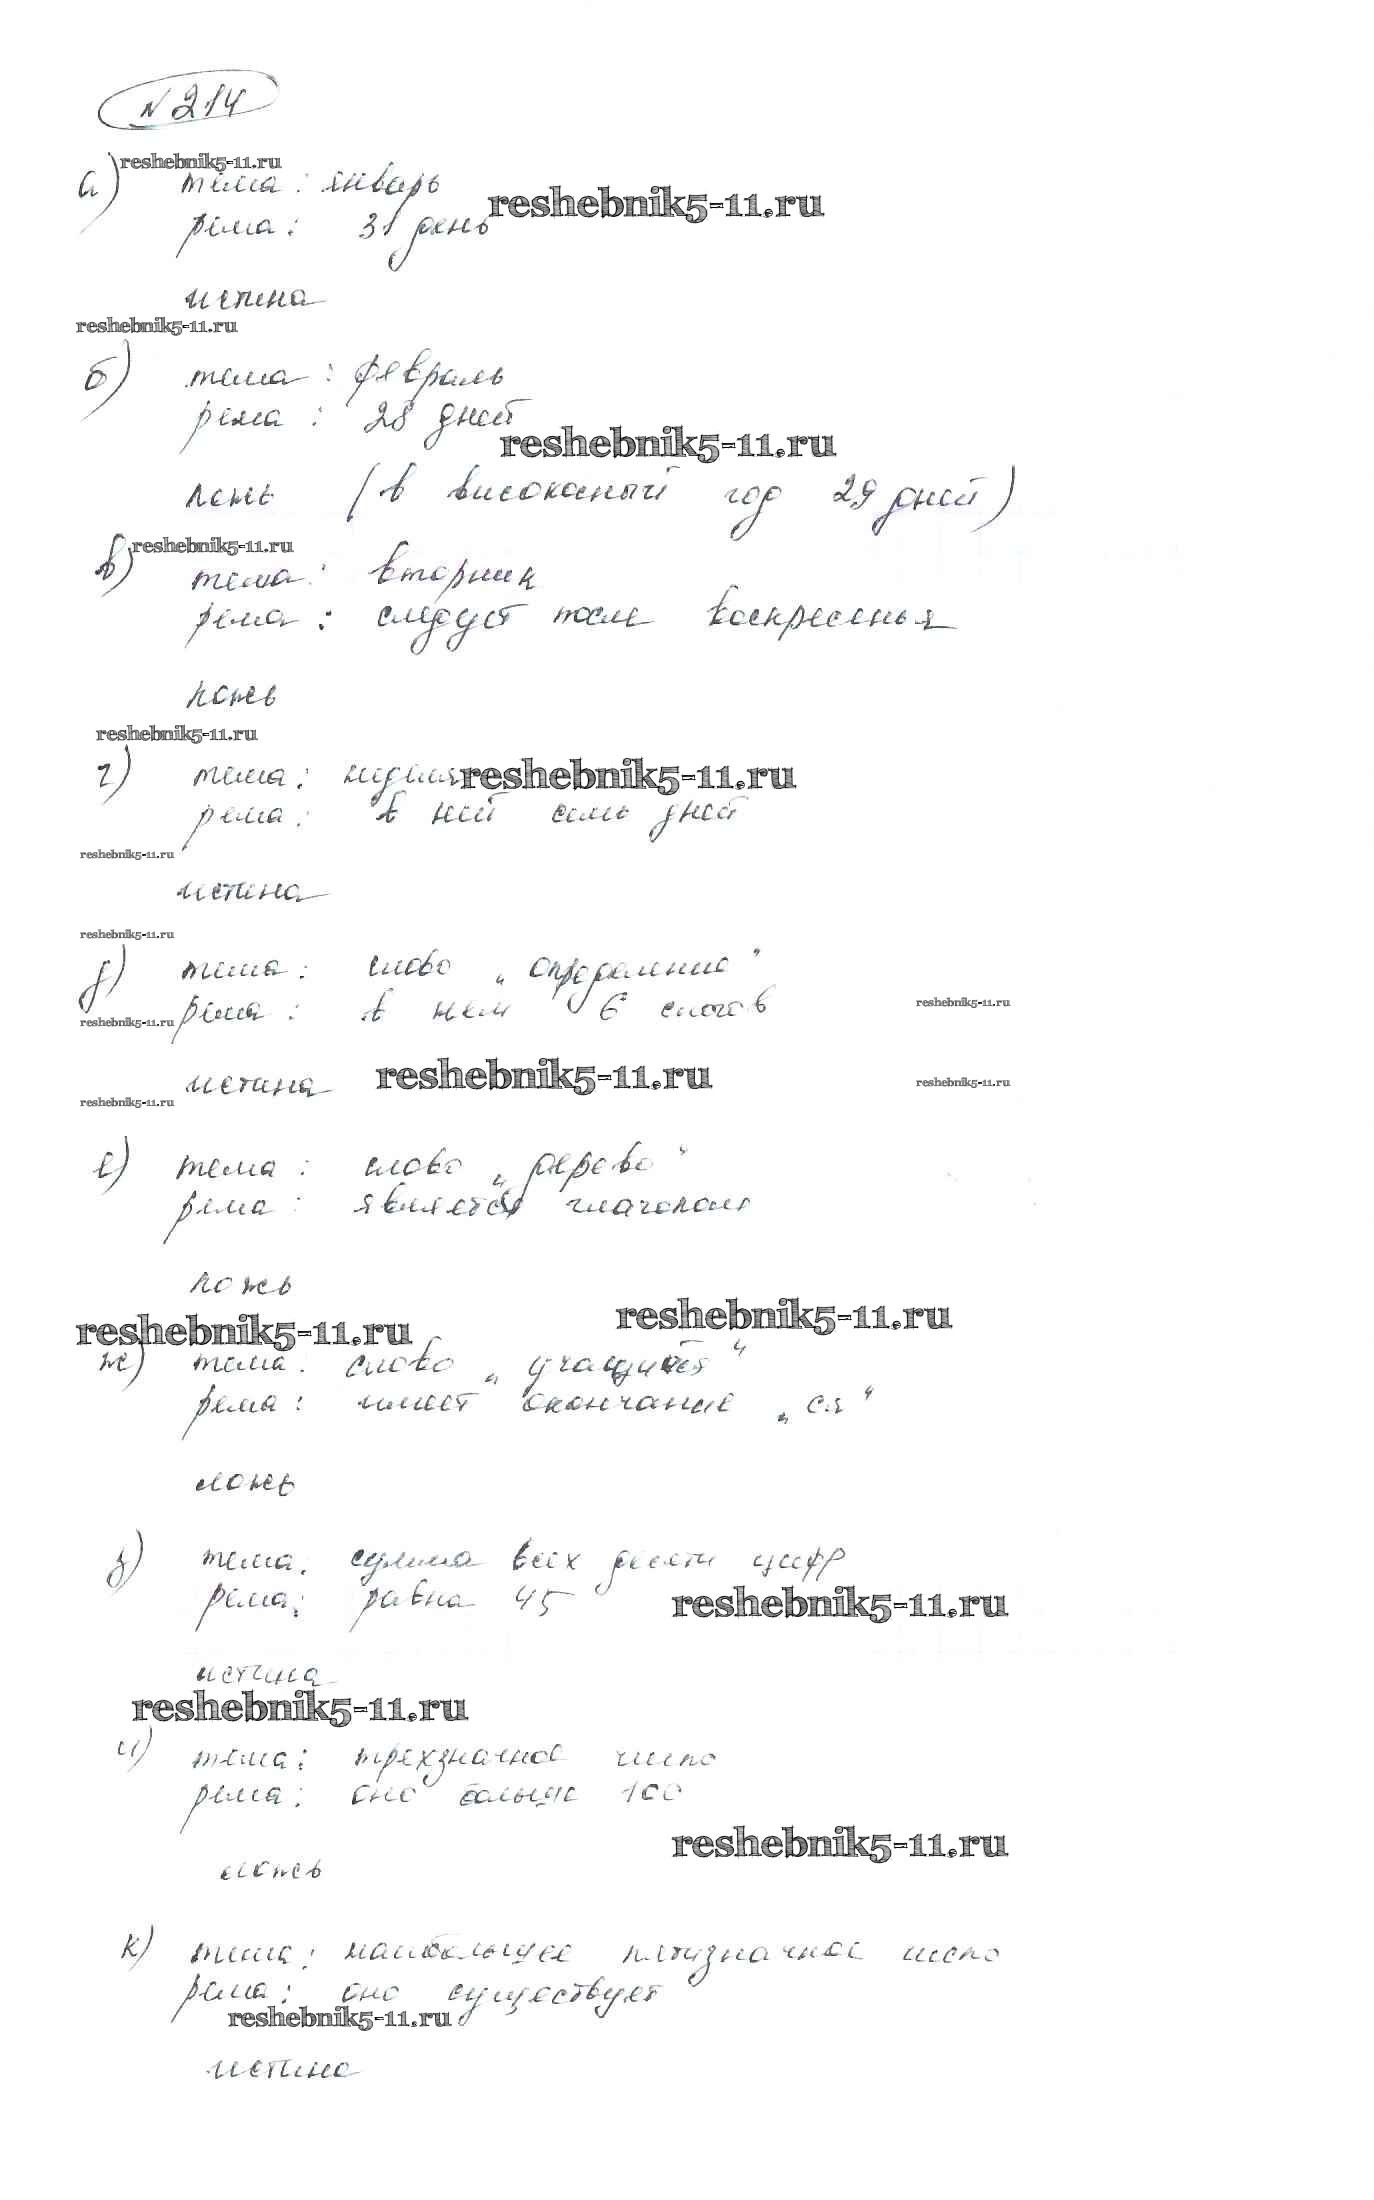 № 214
reshebnik5-11.ru
а) тема: январь
reshebnik5-11.ru
рема: 31 день
истина
reshebnik5-11.ru
б) тема: февраль
рема: 28 дней
reshebnik5-11.ru
ложь (в високосный год 29 дней)
reshebnik5-11.ru
в) тема: вторник
рема: следует после воскресенья
ложь
reshebnik5-11.ru
г) тема: неделя
reshebnik5-11.ru
рема: в ней семь дней
reshebnik5-11.ru
истина
reshebnik5-11.ru
д) тема: слово „определение"
рема: в нем 6 слогов
reshebnik5-11.ru
reshebnik5-11.ru
истина
reshebnik5-11.ru
reshebnik5-11.ru
reshebnik5-11.ru
е) тема: слово „дерево"
рема: является глаголом
ложь
reshebnik5-11.ru
reshebnik5-11.ru
ж) тема: слово „учащийся"
рема: имеет окончание „ся"
ложь
з) тема: сумма всех десяти цифр
рема: равна 45
reshebnik5-11.ru
истина
reshebnik5-11.ru
и) тема: трехзначное число
рема: оно больше 100
reshebnik5-11.ru
ложь
к) тема: наибольшее пятизначное число
рема: оно существует
reshebnik5-11.ru
истина